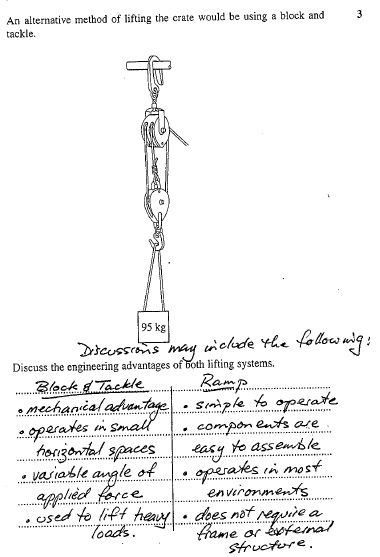 An alternative method of lifting the crate would be using a block and 3
tackle.
95 kg
Discussions may include the following:
Discuss the engineering advantages of both lifting systems.
Block & Tackle Ramp
• mechanical advantage • simple to operate
• operates in small • components are
horizontal spaces easy to assemble
• variable angle of • operates in most
applied force environments
• used to lift heavy • does not require a
loads. frame or external
structure.